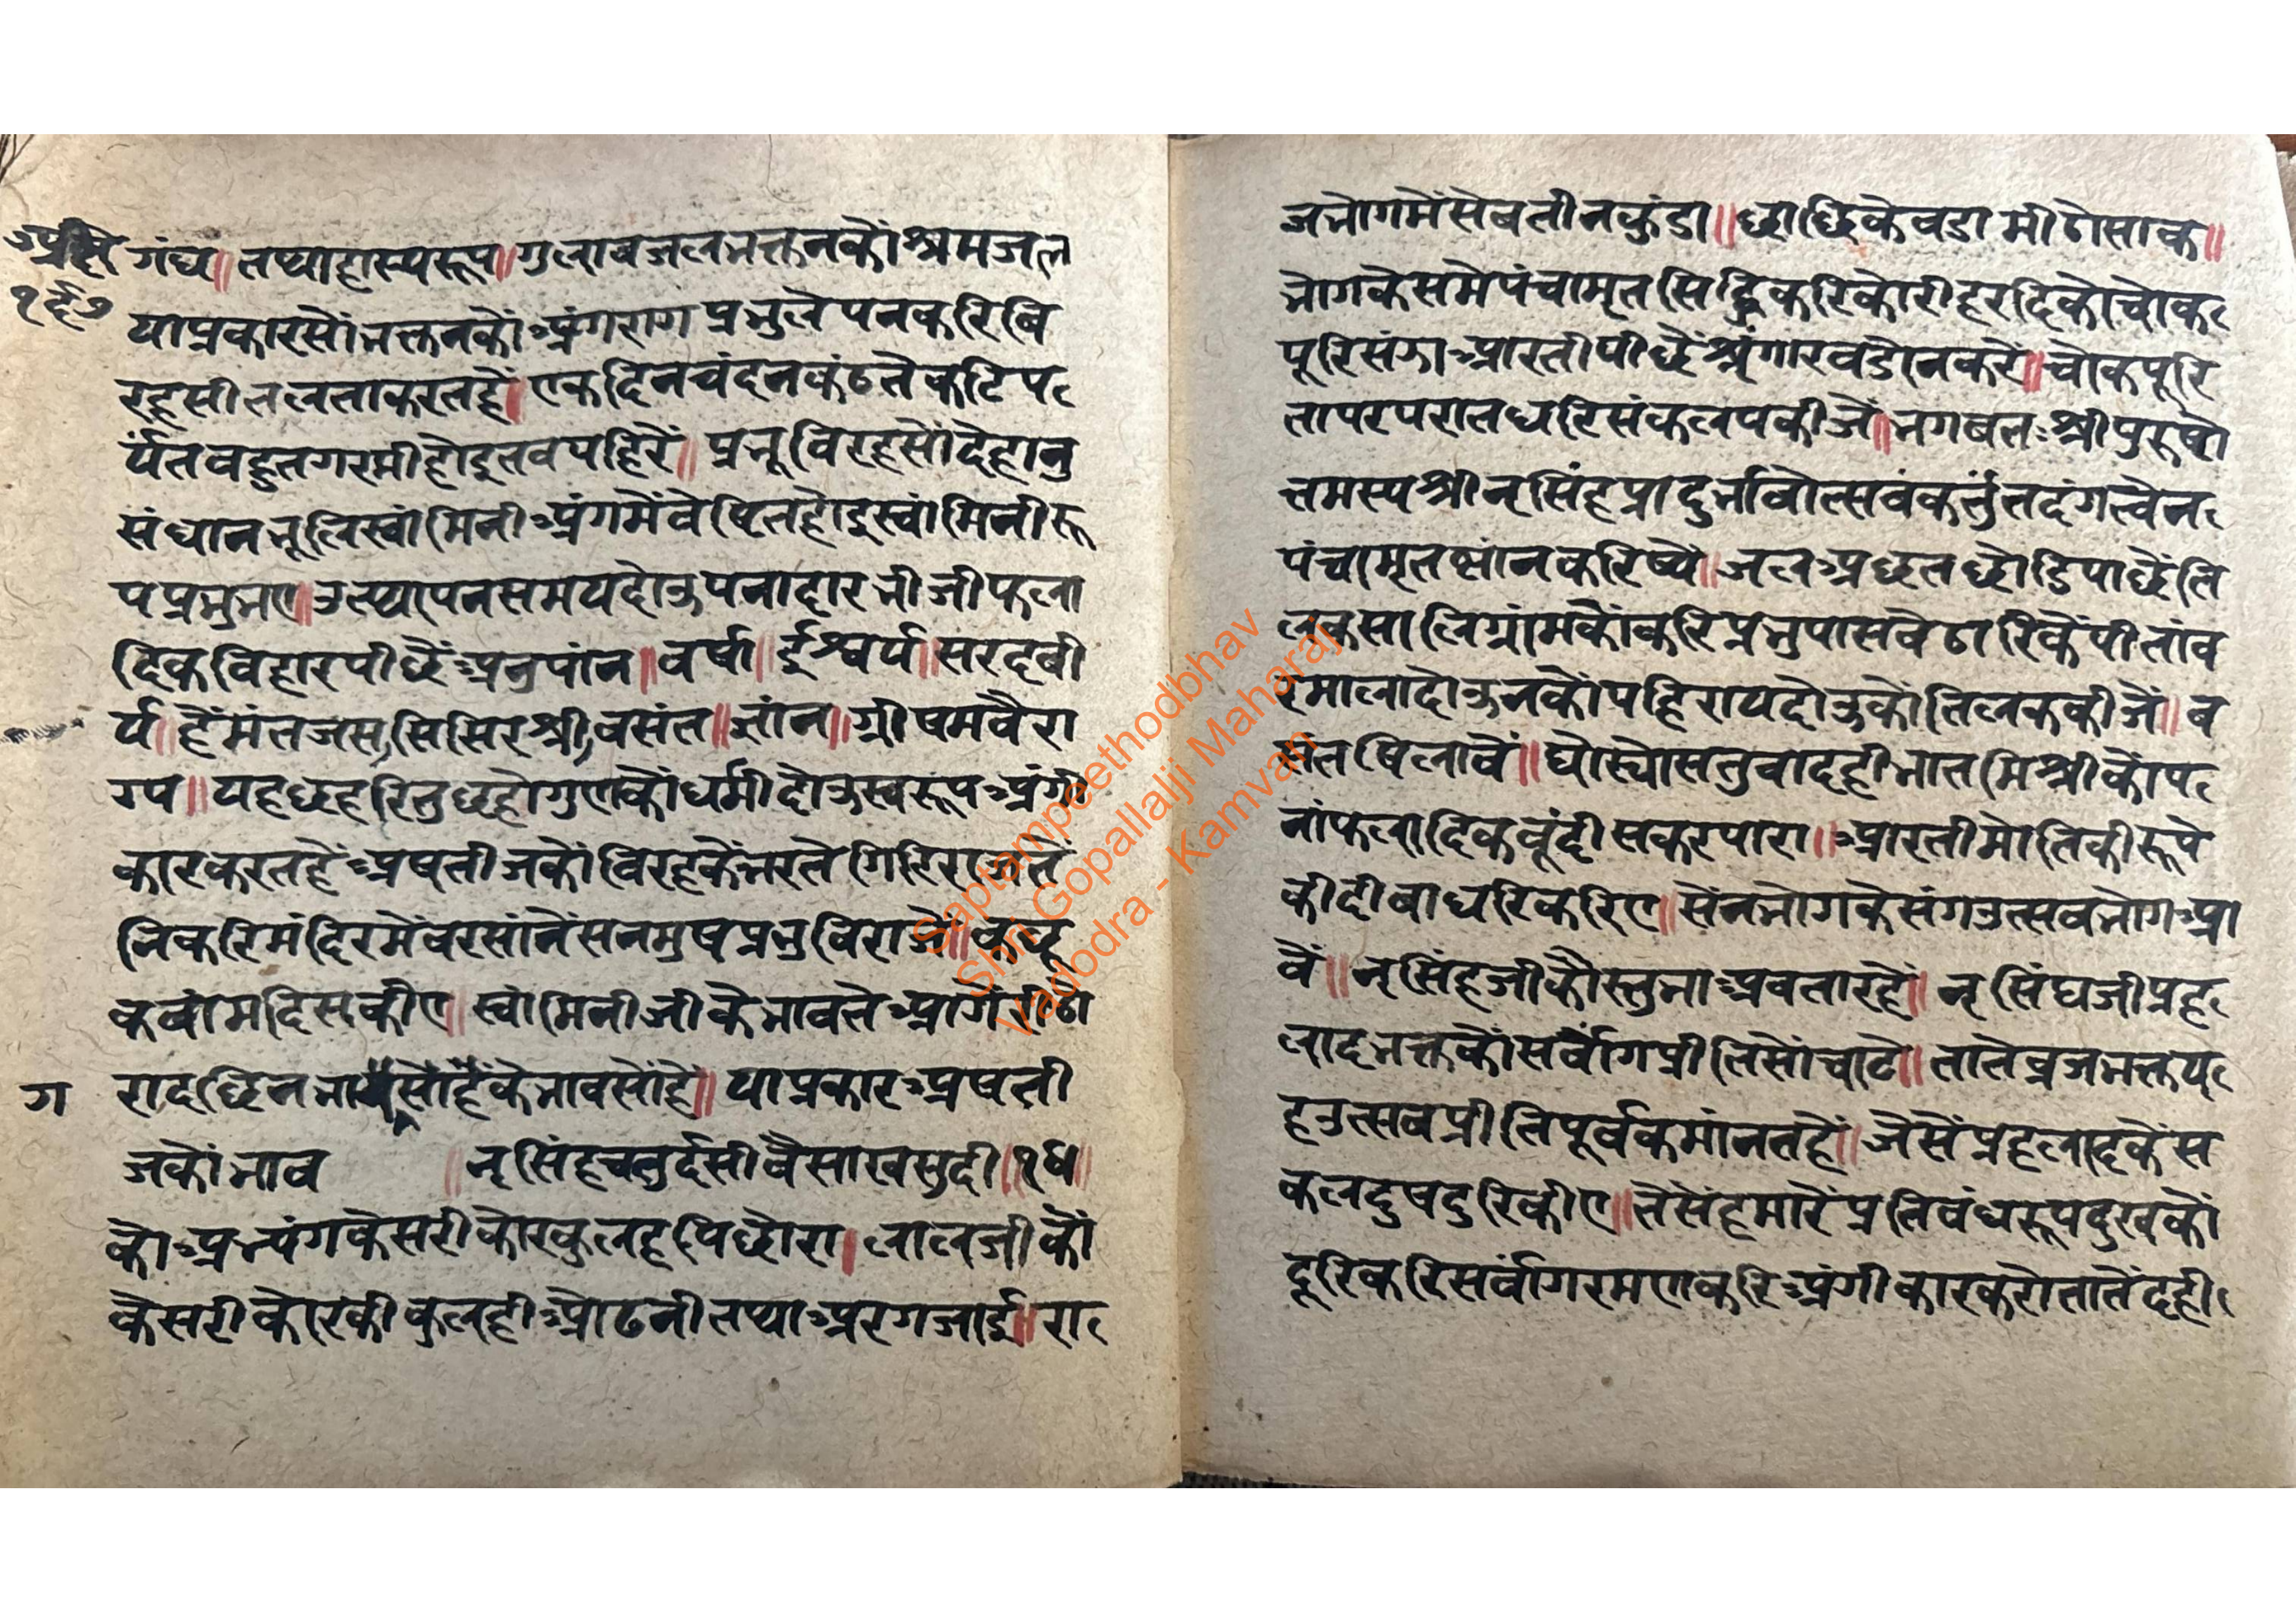 गंध॥ तथाहास्यरूप॥ गुलाबजलभक्तनकौं श्रमजल
१६७
याप्रकारसों भक्तनकौं अंगराग प्रभुलेपनकरि बि
रहसीतलताकरतहें॥ एक दिनचंदनकंठतेकटिप
र्यंतवहुतगरमीहोइतवपहिरें॥ प्रभू विरहसोंदेहानु
संधानभूलिस्वांमिनी अंगमेंवेष्टितहोइस्वांमिनीरू
पप्रभुभए॥ उत्थापनसमयदोऊपनाहारभीजीफला
दिकविहारपीछें अनुपांन॥ वर्षा॥ ईश्वर्य॥ सरदबी
र्य॥ हेंमंतजस, सिसिरश्री, वसंत॥ ज्ञांन॥ ग्रीषमवैरा
ग्य॥ यहछहरितुछहोगुणकोंधर्मीदोऊस्वरूपअंगी
कारकरतहें अषतीजकों विरहकेंभरते गिरिराजतें
निकरिमंदिरमेंवरसांनेंसनमुषप्रभुविराजें॥ कछू
कवांमदिसकीए॥ स्वांमिनीजीकेभावतेआगें
ग
जकोंभाव ॥ नृसिंहचतुर्दसीवैसाखसुदी॥१४॥
कोअभ्यंगकेसरीकोरकुलहपिछोरा॥ लालजीकों
केसरीकोरकीकुलहीओढनीतथाअरगजाई॥ रा
जभोगमेंसेबतीनकुंडा॥ छाछिकेवडामीठोसाक॥
भोगकेसमेपंचामृतसिद्धिकरिकोरीहरदिकोचोक
पूरिसंझाआरतीपीछेंश्रृंगारवडोनकरें॥ चोकपूरि
तापरपरातधरिसंकलपकीजें॥ भगबतःश्रीपुरुषो
त्तमस्यश्रीनृसिंहप्रादुर्भावोत्सवंकर्त्तुंतदंगत्वेन
पंचामृतस्नांनकरिष्ये॥ जलअछतछोडिपाछेंति
लकसालिग्रांमकोंकरिप्रभुपासवेठारिकेंपीतांव
रमालादोऊनकोंपहिरायदोऊकोंतिलककीजें॥ ब
षिलावें॥ घोस्योसतुवादहीभातमिश्रीकोप
नांफलादिकबूंदीसकरपारा॥ आरतीमोतिकीरूपे
कीदीबाधरिकरिए॥ सेंनभोगकेसंगउत्सवभोगआ
वें॥ नृसिंहजीकौस्तुभाअवतारहें॥ नृसिंघजीप्रह
लादभक्तकोंसर्वांगप्रीतिसोंचाटे॥ तातेव्रजभक्तय
हउत्सबप्रीतिपूर्वकमांनतहें॥ जेसेंप्रहलादकेंस
कलदुषदुरिकीए॥ तेसेंहमारेंप्रतिवंधरूपदुखकों
दूरिकरिसर्वांगरमणकरिअंगीकारकरोतातेंदही
Saptampeethodbhav
Shri Gopallalji Maharaj
Vadodra - Kamvan